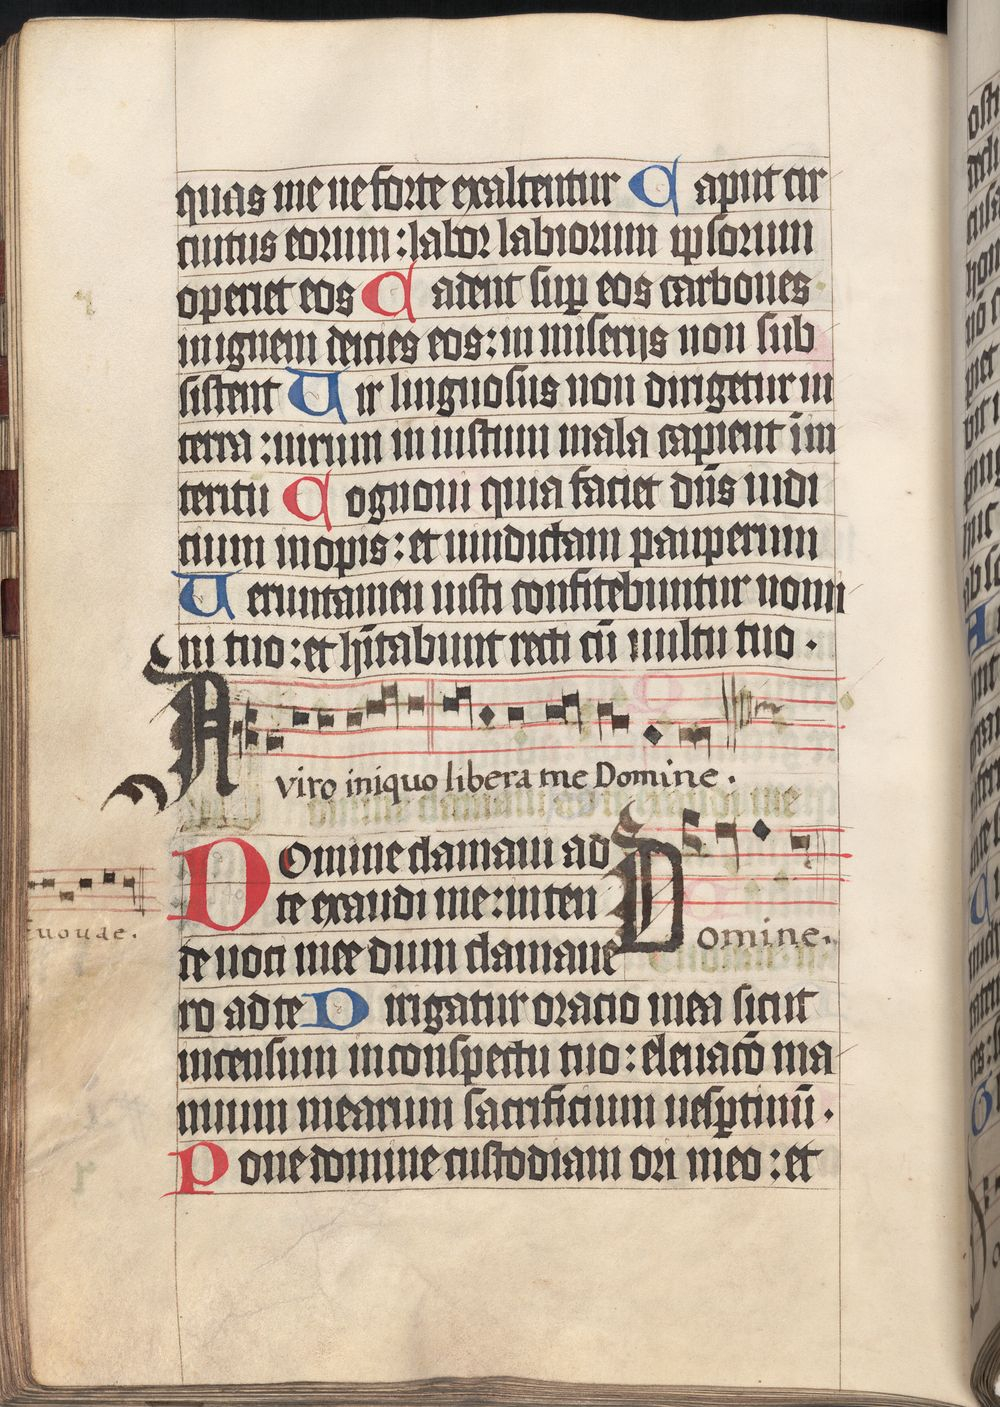 quas me ne forte exaltentur Caput cir
cuitus eorum : labor labiorum ipsorum
operiet eos Cadent sup eos carbones
in ignem deicies eos : in miseriis non sub
sistent Vir linguosus non dirigetur in
terra : uirum iniustum mala capient i̅m
teritu Cognoui quia faciet dn̅s iudi
cium inopis : et uindictam pauperum
Veruntamen iusti confitebuntur nomi
ni tuo : et hi̅tabunt recti cu̅ uultu tuo .
A viro iniquo libera me Domine .
Domine clamaui ad
te exaudi me : inten
Domine .
euouae .
de uoci mee dum clamaue
ro ad te Dirigatur oracio mea sicut
incensum in conspectu tuo : eleuaco̅ ma
nuum mearum sacrificium uesp̱tinu̅ .
Pone domine custodiam ori meo : et